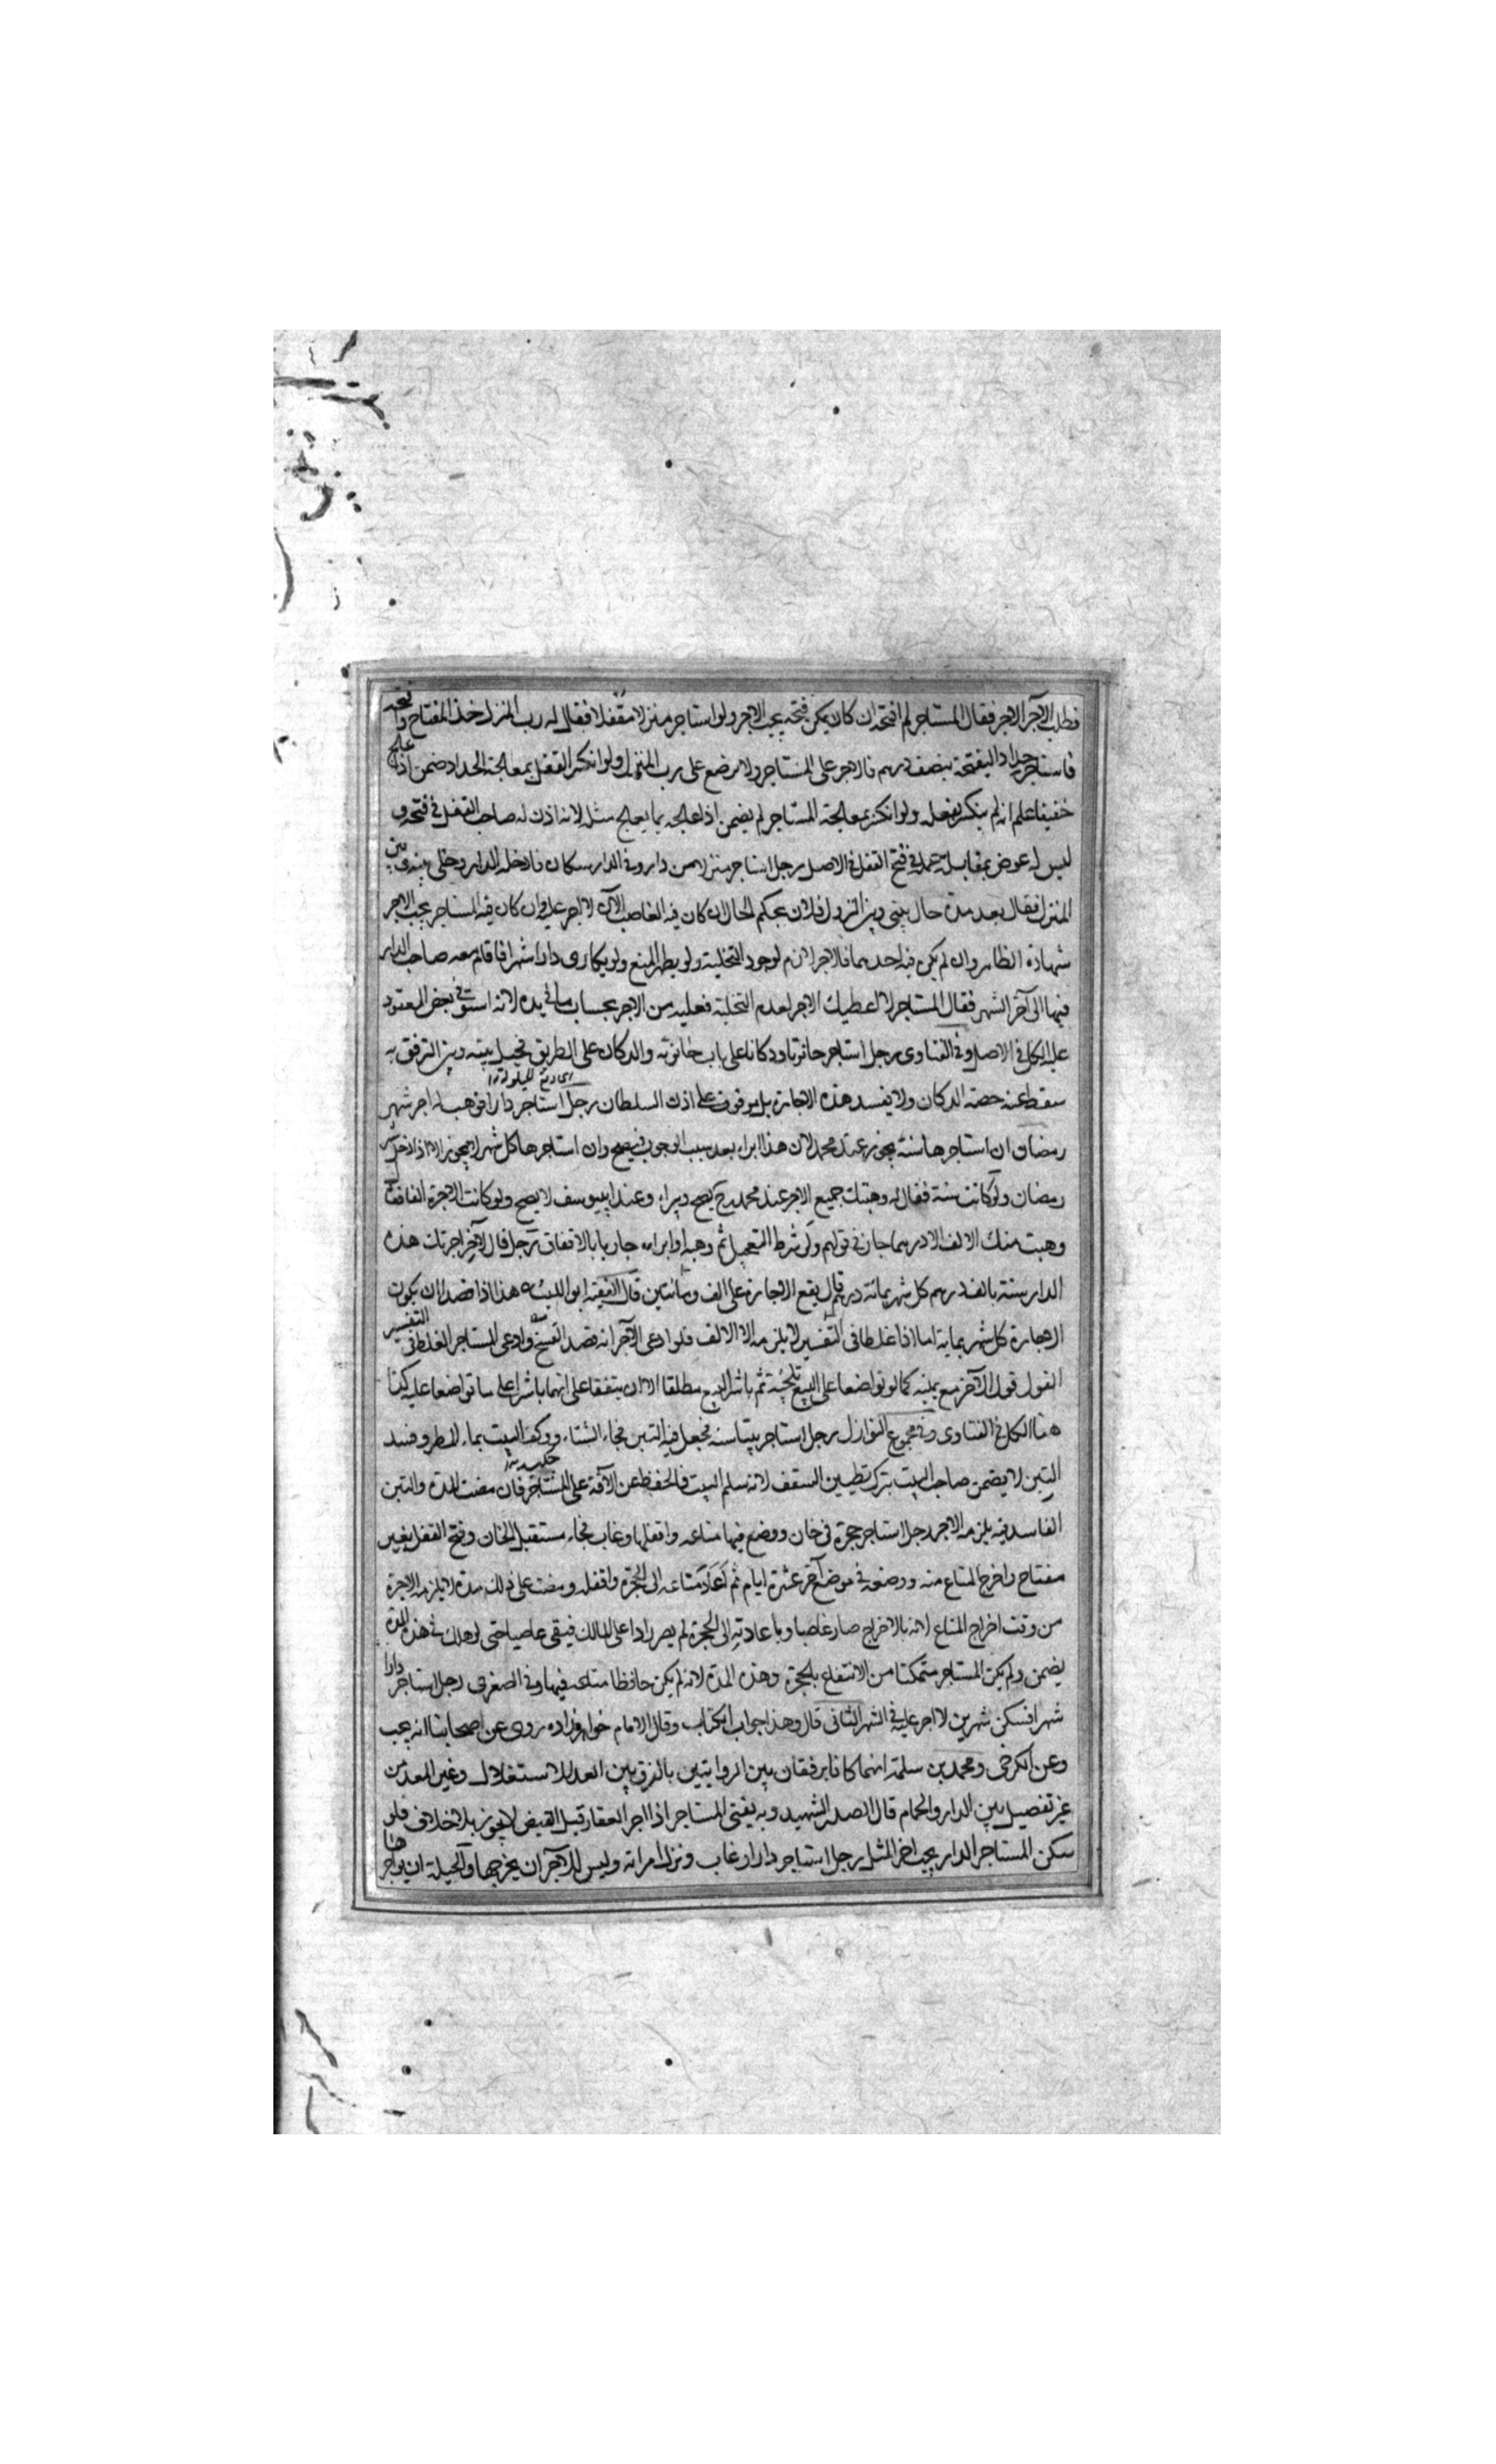 فطلب الآجر الاجر فقال المستاجر لم افتحه ان كان يمكن فتحه يجب الاجر ولو استاجر منزلا مقفلا فقال له رب المنزل خذ المفتاح وافتحه
فاستاجر حدادا ليفتحه بنصف درهم فالاجر على المستاجر ولا يرجع على رب المنزل ولو انكسر القفل بمعالجة الحداد ضمن اذا عالج
خفيفا علم انه لم ينكسر بفعله ولو انكسر بمعالجة المستاجر لم يضمن اذا عالجه بما يعالج مثله لانه اذن له صاحب القفل في فتحه و
ليس له عوض بمقابلة عمله في فتح القفل في الاصل رجل استاجر منزلا من دار وفي الدار سكان فادخله الدار وخلى بينه وبين
المنزل فقال بعد مدة حال بيني وبين النزول فلان يحكم الحال ان كان فيه الغاصب الآن لا اجر عليه وان كان فيه المستاجر يجب الاجر
شهادة الظاهر وان لم يكن فيه احدهما فالاجر لازم لوجود التخلية ولو يظهر المنع ولو تكارى دارا شهرا فاقام معه صاحب الدار
فيها الى آخر الشهر فقال المستاجر لا اعطيك الاجر لعدم التخلية فعليه من الاجر بحساب ما في يده لانه استوفى بعض المعقود
عليه الكل في الاصل وفي الفتاوى رجل استاجر حانوتا ودكانا على باب حانوته والدكان على الطريق فحيل بينه وبين الترفق به
سقط عنه حصة الدكان ولا يفسد هذه الاجارة بل موقوف على اذن السلطان رجل استاجر دارا فوهب له اجر شهر
رمضان ان استاجرها سنة يجوز عند محمد لان هذا ابراء بعد سبب الوجوب فيصح وان استاجرها كل شهر لا يجوز الا اذا دخل
رمضان ولو كانت سنة فقال له وهبتك جميع الاجر عند محمد رح يصح ويبرا وعند ابي يوسف لا يصح ولو كانت الاجرة الفا فقال
وهبت منك الالف الا درهما جاز في قولهم ولو شرط التعجيل ثم وهبه او ابراه جاز بالاتفاق رجل قال لآخر اجرتك هذه
الدار سنة بالف درهم كل شهر بمائة درهم قال يقع الاجارة على الف ومائتين قال الفقيه ابو الليث هذا اذا قصدا ان يكون
الاجارة كل شهر بماية اما اذا غلطا في التفسير لا يلزمه الا الالف فلو ادعى الآجر انه قصد الفسخ وادعى المستاجر الغلط في التفسير
القول قول الآخر مع يمينه كما لو تواضعا على البيع تلجئة ثم باشر البيع مطلقا الا ان يتفقا على انهما باشرا على ما تواضعا عليه كذا
هنا الكل في الفتاوى وفي مجموع النوازل رجل استاجر بيتا سنة فجعل فيه التبن فجاء الشتاء ووكف البيت بماء المطر وفسد
التبن لا يضمن صاحب البيت بترك تطيين السقف لانه سلم البيت فالحفظ عن الآفة على المستاجر فان مضت المدة والتبن
الفاسد فيه يلزمه الاجر رجل استاجر حجرة في خان ووضع فيها متاعه واقفلها وغاب فجاء مستقبل الخان وفتح القفل بغير
مفتاح واخرج المتاع منه ووضعه في موضع آخر عشرة ايام ثم اعاد متاعه الى الحجرة واقفله ومضت على ذلك مدة لا يلزمه الاجرة
من وقت اخراج المتاع لانه بالاخراج صار غاصبا وباعادته الى الحجرة لم يصر رادا على المالك فيبقى عاصيا حتى لو هلك في هذه المدة
يضمن ولم يكن المستاجر متمكنا من الانتفاع بالحجرة وهذه المدة لانه لم يكن حافظا متاعه فيها وفي الصغرى رجل استاجر دارا
شهرا فسكن شهرين لا اجر عليه في الشهر الثاني قال وهذا جواب الكتاب وقال الامام خواهرزاده روى عن اصحابنا انه يجب
وعن الكرخي ومحمد بن سلمة انهما كانا يرفقان بين الروايتين بالفرق بين المعد للاستغلال وغير المعد من
غير تفصيل بين الدار والحمام قال الصدر الشهيد وبه يفتي المستاجر اذا اجر العقار قبل القبض لا يجوز بلا خلاف فلو
سكن المستاجر الدار يجب اجر المثل رجل استاجر دارا وغاب ونزل امراته وليس للآجر ان يخرجها والحيلة ان يواجرها